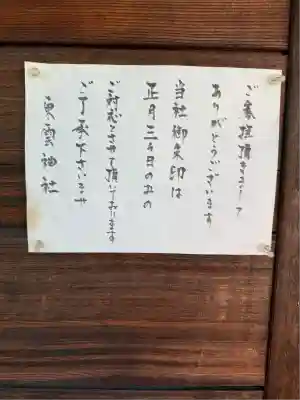 ご参拝頂きまして
ありがとうございます
当社御朱印は
正月三ヶ日のみの
ご対応とさせて頂いております
ご了承下さいませ
東雲神社